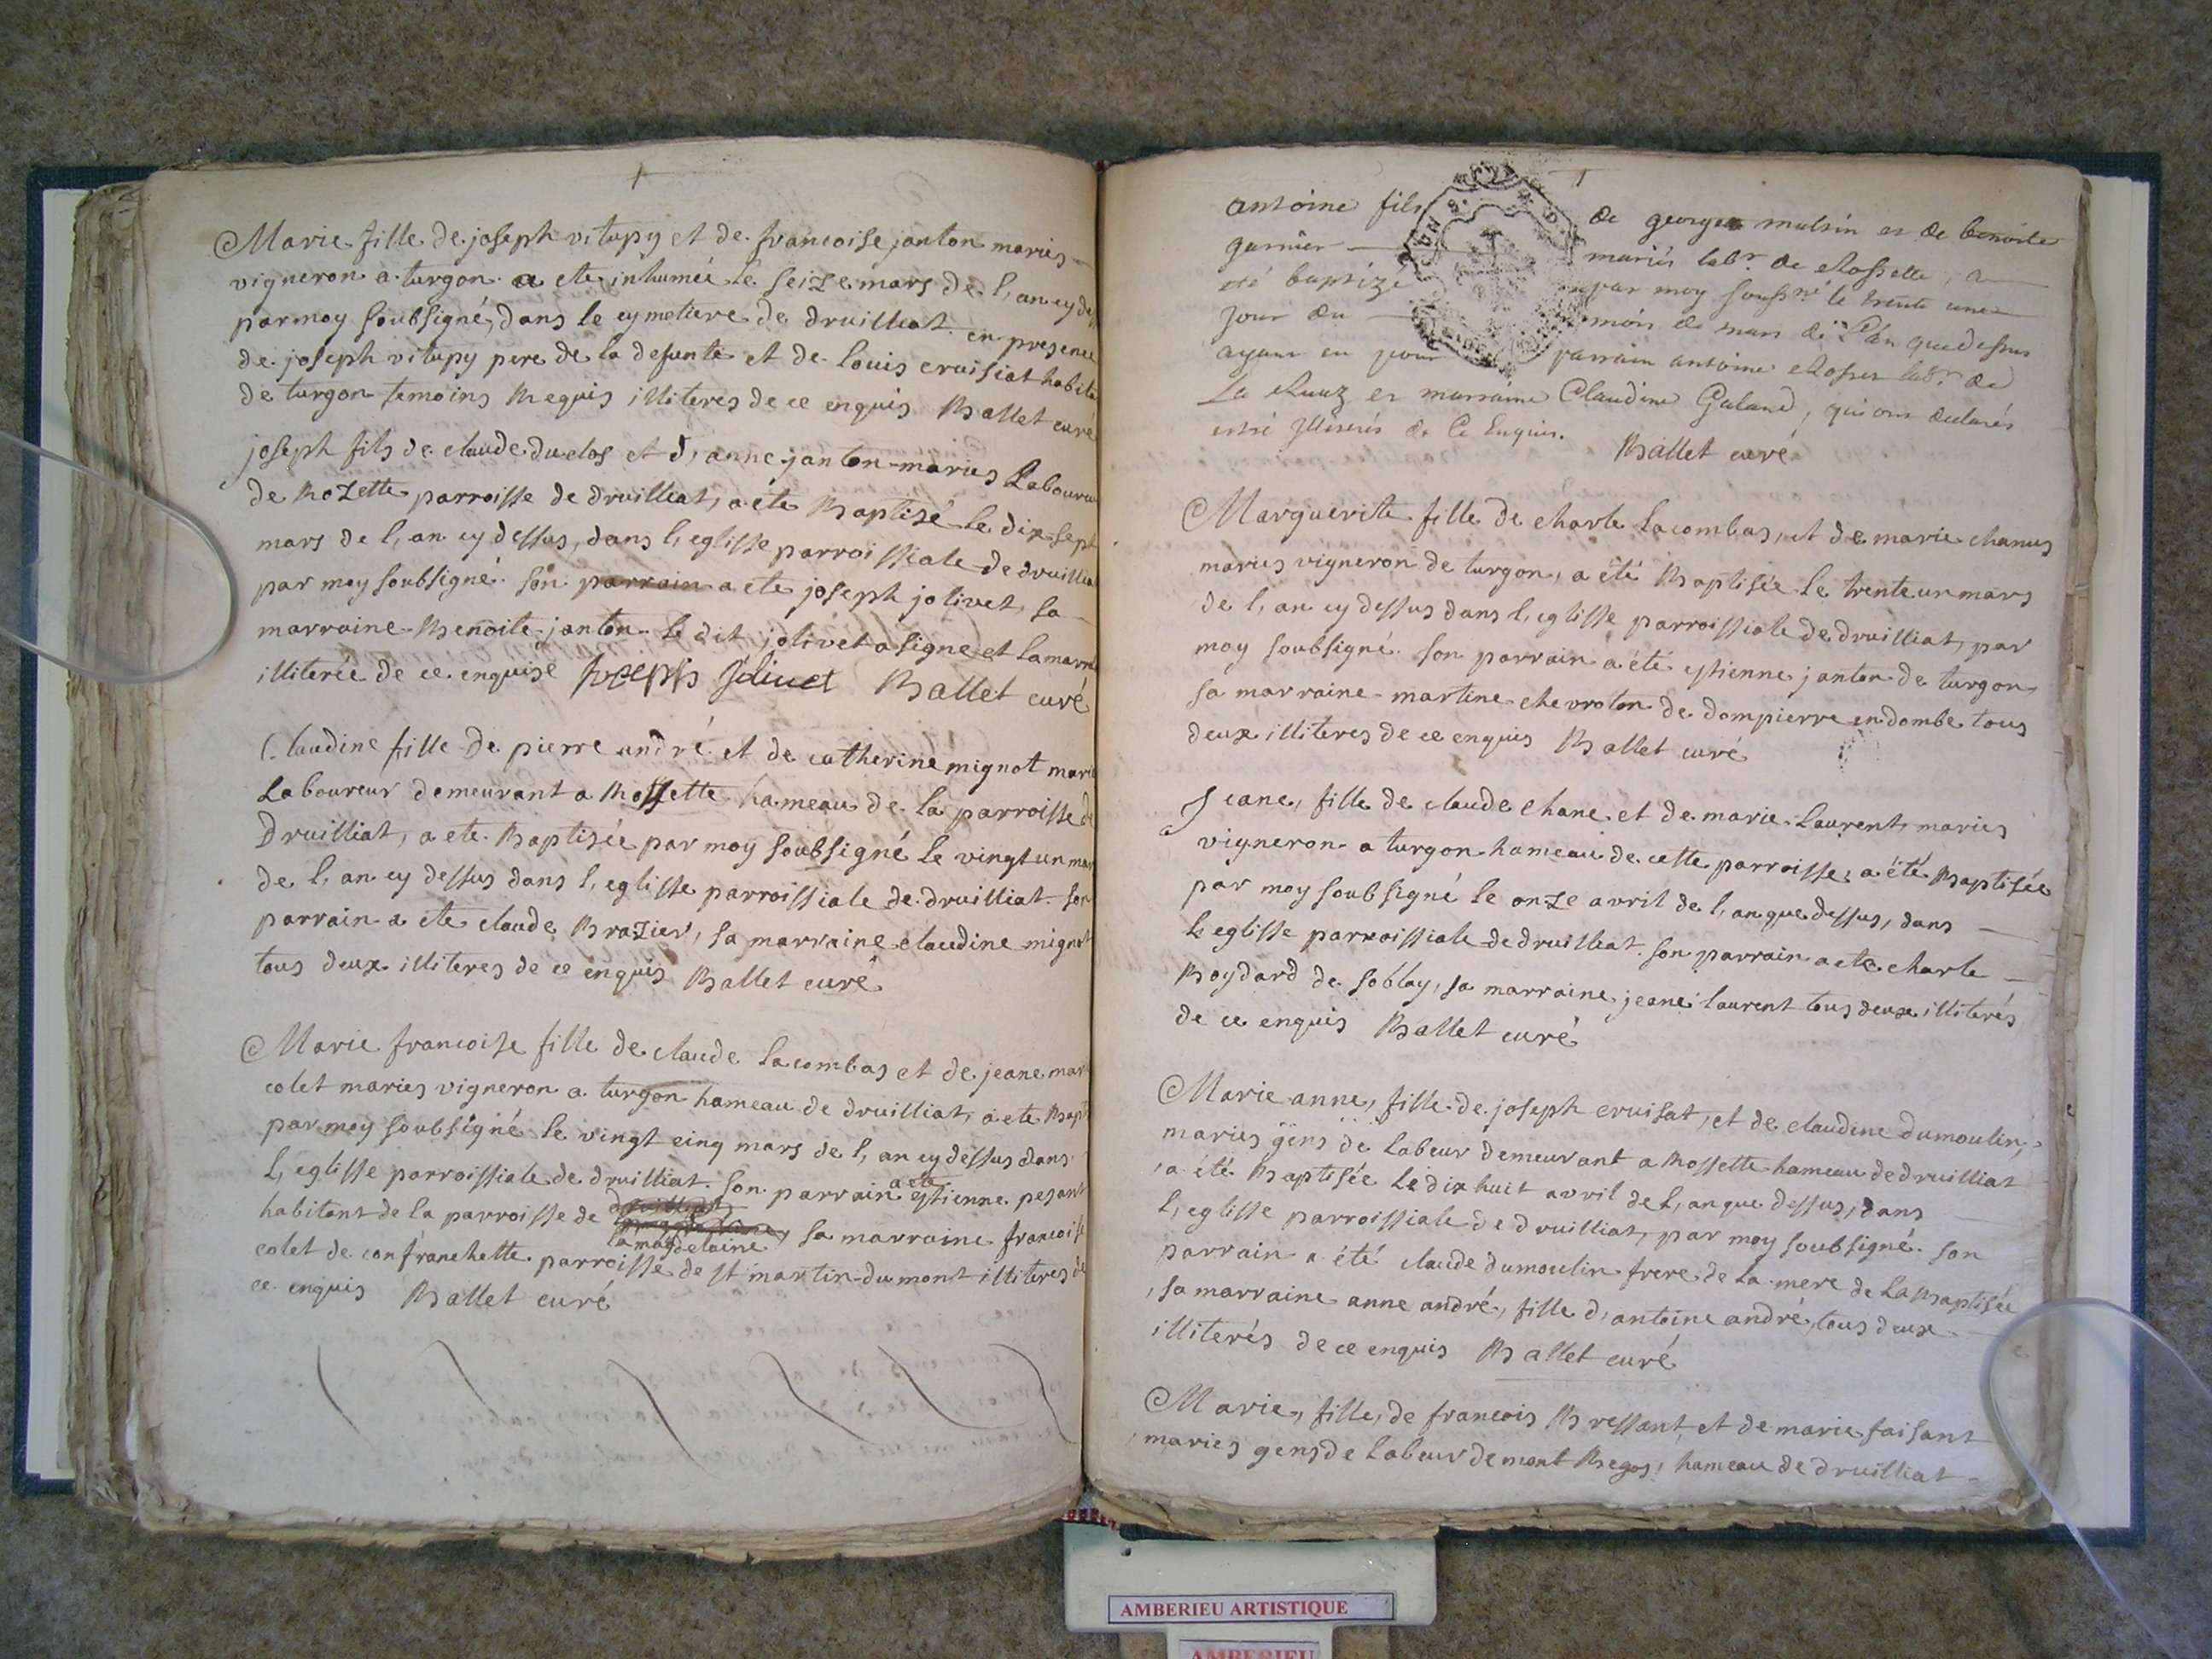 Marie fille de joseph vitupy et de francoise janton maries
vigneron a turgon a ete inhumée le seize mars de l, an cy des
par moy soubsigné, dans le cymetiere de druilliat en presence
de joseph vitupy pere de la defunte et de louis cruisiat habita
de turgon temoins Requis illiteres de ce enquis Ballet curé
joseph fils de claude duclos et d, anne janton maries Laboureu
de Rozette parroisse de druilliat, a éte Baptisé le dix sept
mars de l, an cy dessus, dans l, eglisse parroissiale de druillia
par moy soubsigné. son parrain a ete joseph jolivet, sa
marraine Benoite janton le dit jolivet a signe et la marra
illiterée de ce enquise joseph Joliuet Ballet curé
Claudine fille de pierre andré et de catherine mignot marié
Laboureur demeurant a Rossette hameau de la parroisse de
Druilliat, a ete Baptisée par moy soubsigné le vingt un mar
de l, an cy dessus dans l, eglisse parroissiale de druilliat. son
parrain a ete claude Brazier, sa marraine claudine mignot
tous deux illiteres de ce enquis Ballet curé
Marie francoise fille de claude Lacombas et de jeane mar
colet maries vigneron a turgon hameau de druilliat, a ete Bapt
par moy soubsigné le vingt cinq mars de l, an cy dessus dans
L, eglisse parroissiale de druilliat. son parrain a ete estienne pesant
habitant de la parroisse de la magdelaine, sa marraine francoise
colet de confranchette parroisse de st martin du mont illiteres de
ce enquis Ballet curé
antoine fils de george mulsin et de benoite
garnier mariés labr. de Rossette, a
été baptizé par moy soussné le trente une
Jour du mois de mars de L'an que dessus
ayant eu pour parrain antoine Rosset labr. de
La Ruaz et marraine Claudine Galand, qui ont declarés
estre Illiterés de Ce Enquis. Ballet curé
Marguerite fille de charle Lacombas, et de marie chanus
maries vigneron de turgon, a été Baptisée le trente un mars
de l, an cy dessus dans l, eglisse parroissiale de druilliat, par
moy soubsigné. son parrain a été estienne janton de turgon
sa marraine martine chevroton de dompierre en dombe tous
deux illiteres de ce enquis Ballet curé
Jeane, fille de claude Chane et de marie Laurent, maries
vigneron a turgon hameau de cette parroisse, a été Baptisée
par moy soubsigné le onze avril de l, an que dessus, dans
L eglisse parroissiale de druilliat. son parrain a ete charle
Boydard de soblay, sa marraine jeane laurent tous deux illiterés
de ce enquis Ballet curé
Marie anne, fille de joseph cruisat, et de claudine dumoulin,
maries gens de Labeur demeurant a Rossette hameau de druilliat
a été Baptisée le dix huit avril de l, an que dessus, dans
l, eglisse parroissiale de druilliat, par moy soubsigné. son
parrain a été claude dumoulin frere de la mere de la Baptisée
, sa marraine anne andré, fille d, antoine andré, tous deux
illiterés de ce enquis Ballet curé
Marie, fille, de francois Bressant et de marie faisant
maries gens de Labeur de mont Regos, hameau de druilliat
AMBERIEU ARTISTIQUE
AMBERIEU